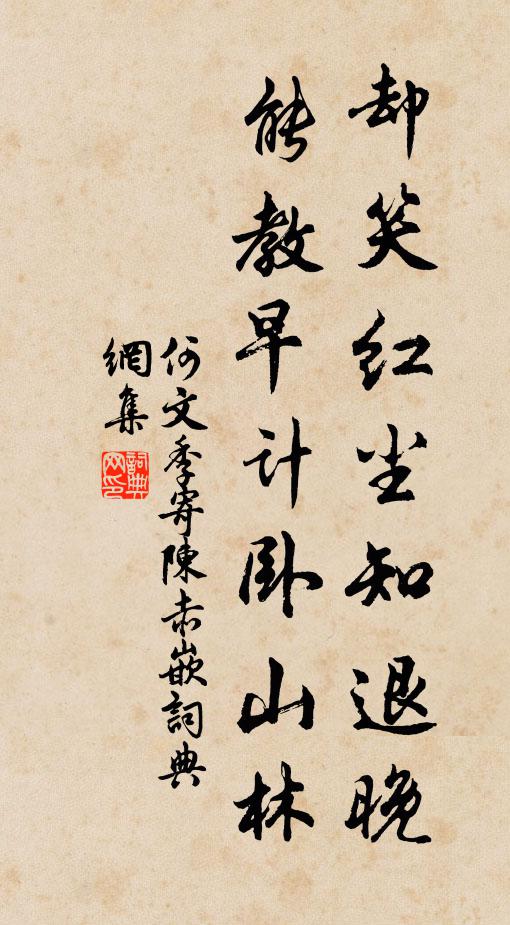 却笑红尘知退晚
能教早计卧山林
何文季寄陳赤嵌詞典
網集
詞典
网印